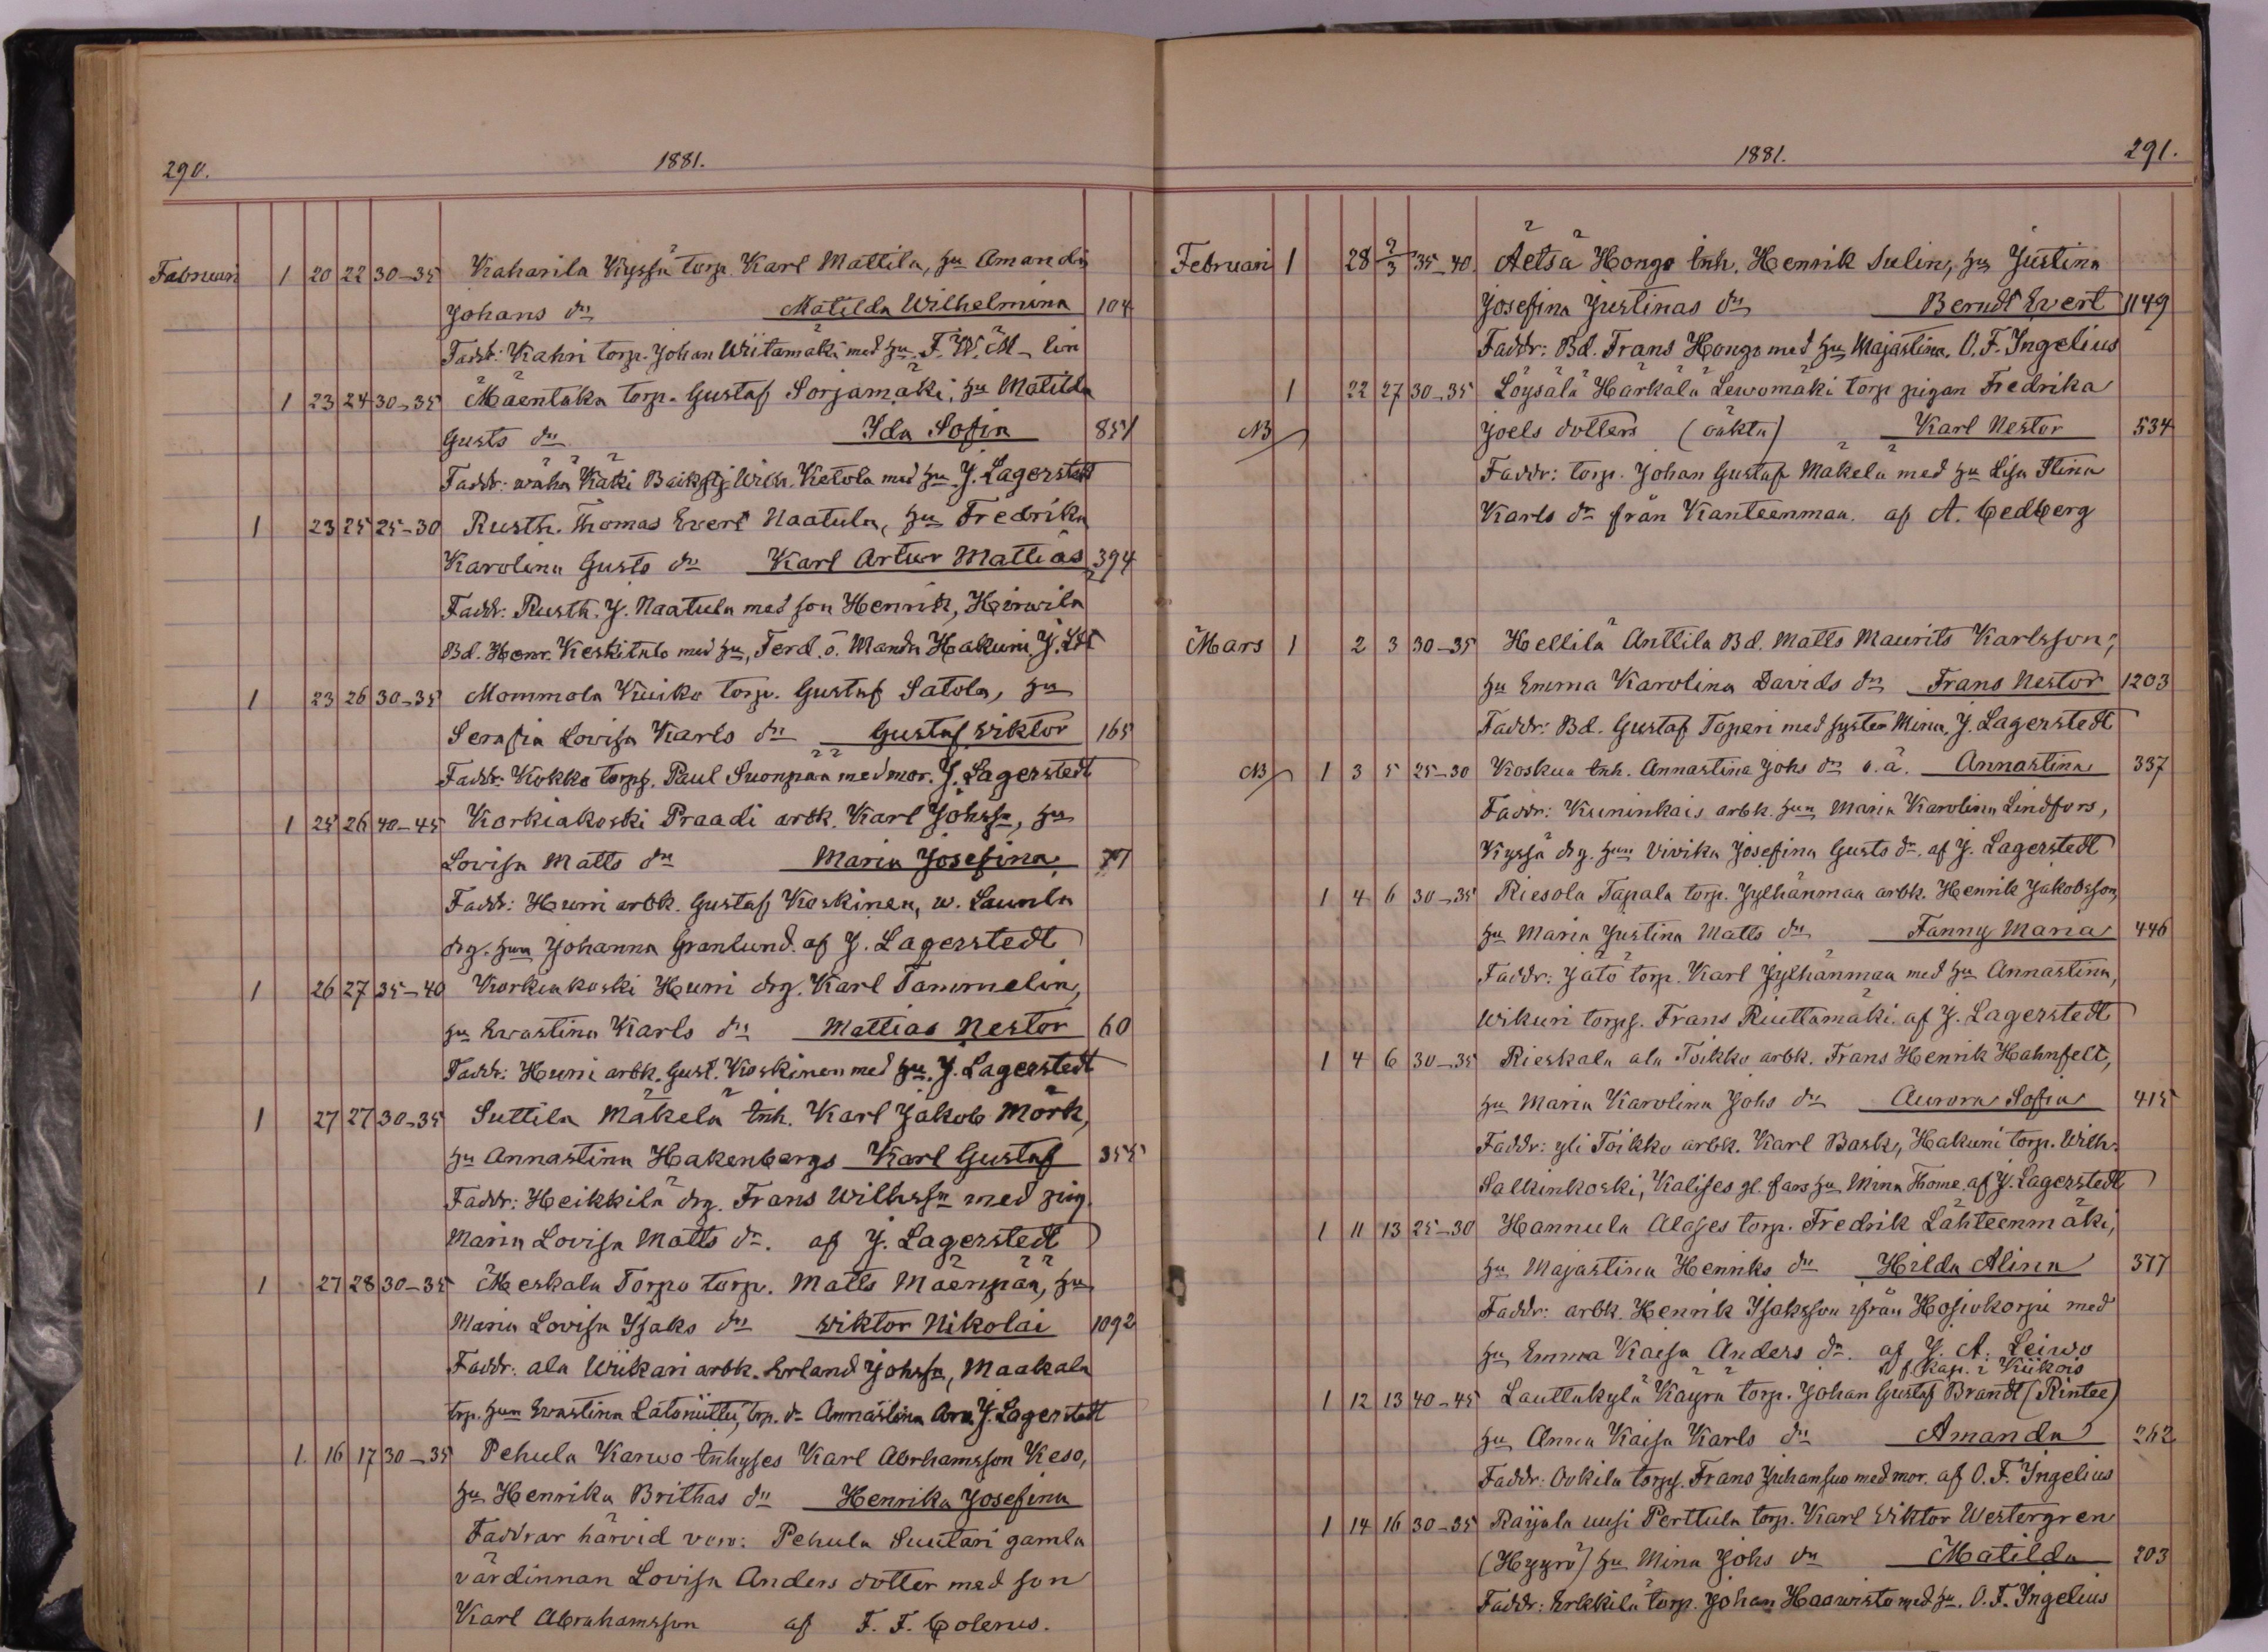 290. 1881.
Februari 1 20 22 30-35 Kaharila Kyssä torp. Karl Mattila, hu Amanda
Johans dr Matilda Wilhelmina 104
Faddr: Kahri torp. Johan Wiitamäki med hu. F. W. M-lin
1 23 24 30-35 Mäentaka torp. Gustaf Sorjamäki, hu Matilda
Gusts dr Ida Sofia 851
Faddr: wähä Käki Wilh. Ketola med hu. J. Lagerstedt
1 23 25 25-30 Rusth. Thomas Evert Naatula, hu Fredrika
Karolina Gusts dr Karl Artur Mattias 394
Faddr: Rusth. J. Naatula med son Henrik, Hirwila
Bd. Henr. Keskitalo med hu, Ferd. o. Manda Hakuni J. Ldt
1 23 26 30-35 Mommola Kuiko torp. Gustaf Satola, hu
Serafia Lovisa Karls dr Gustaf Wiktor 165
Faddr: Kokko torps. Paul Suonpää med mor. J. Lagerstedt
1 25 26 40-45 Korkiakoski Praadi arbk. Karl Johssn, hu
Lovisa Matts dr Maria Josefina 77
Faddr: Hurri arbk. Gustaf Koskinen, w. Launla
drg. hun Johanna Granlund. af J. Lagerstedt
1 26 27 35-40 Korkiakoski Hurri drg. Karl Tammelin,
hu Ewastina Karls dr Mattias Nestor 60
Faddr: Hurri arbk. Gust. Koskinen med hu. J. Lagerstedt
1 27 27 30-35 Suttila Mäkelä inh. Karl Jakob Mörk,
hu Annastina Hakenbergs Karl Gustaf 355
Faddr: Heikkilä drg. Frans Wilhssn med pig.
Maria Lovisa Matts dr. af J. Lagerstedt
1 27 28 30-35 Meskala Torpo torp. Matts Mäenpää, hu
Maria Lovisa Isaks dr Wiktor Nikolai 1092
Faddr: ala Wiikari arbk. Erland Johssn, Maakala
trp. hun Ewastina Latoniittu, trp. dr Annastina Aro J. Lagerstedt
1 16 17 30-35 Pehula Karwo inhyses Karl Abrhamsson Keso,
hu Henrika Brithas dr Henrika Josefina
Faddrar härvid voro: Pehula Suutari gamla
värdinnan Lovisa Anders dotter med son
Karl Abrahamsson af F. F. Colerus.
1881. 291.
Februari 1 28 2/3 35-40 Äetsä Hongo inh. Henrik Sulin, hu Justina
Josefina Justinas dr Berndt Evert 1149
Faddr: Bd. Frans Hongo med hu Majastina. O. F. Ingelius
1 22 27 30-35 Löysälä Härkälä Lewomäki torp pigan Fredrika
NB Joels dotters (oäkta) Karl Nestor 534
Faddr: torp. Johan Gustaf Mäkelä med hu Lisa Stina
Karls dr från Kanteenmaa. af A. Cedberg
Mars 1 2 3 30-35 Hellilä Anttila Bd. Matts Maurits Karlsson,
hu Emma Karolina Davids dr Frans Nestor 1203
Faddr: Bd. Gustaf Toperi med syster Mina. J. Lagerstedt
NB 1 3 5 25-30 Koskua inh. Annastina Johs dr o.ä. Annastina 337
Faddr: Kuninkais arbk. hun Maria Karolina Lindfors,
Kyssä drg. hun Vivika Josefina Gusts dr. af J. Lagerstedt
1 4 6 30-35 Riesola Tapala torp. Jylhänmaa arbk. Henrik Jakobsson,
hu Maria Justina Matts dr Fanny Maria 446
Faddr: Jätö torp. Karl Jylhänmaa med hu Annastina,
Wikuri torps. Frans Riuttamäki. af J. Lagerstedt
1 4 6 30-35 Rieskala ala Toikko arbk. Frans Henrik Hahnfelt,
hu Maria Karolina Johs dr Aurora Sofia 415
Faddr: yli Toikko arbk. Karl Bask, Hakuni torp. Wilh.
Salkinkoski, Kalises gl. fars hu Mina Thome. af J. Lagerstedt
1 11 13 25-30 Hannula Alases torp. Fredrik Lähteenmäki,
hu Majastina Henriks dr Hilda Alina 377
Faddr: arbk. Henrik Isaksson ifrån Hosiokorpi med
hu Emma Kaisa Anders dr. af J. A. Leiwo
v. f. Kap. i Kiikois
1 12 13 40-45 Lauttakylä Käyrä torp. Johan Gustaf Brandt (Rintee)
hu Anna Kaisa Karls dr Amanda 262
Faddr: Ovkila torps. Frans Juhansuo med mor. af O. F. Ingelius
1 14 16 30-35 Raijala uusi Perttula torp. Karl Wiktor Westergren
(Hyyrö) hu Mina Johs dr Matilda 203
Faddr: Erkkilä torp. Johan Haawisto med hu. O. F. Ingelius